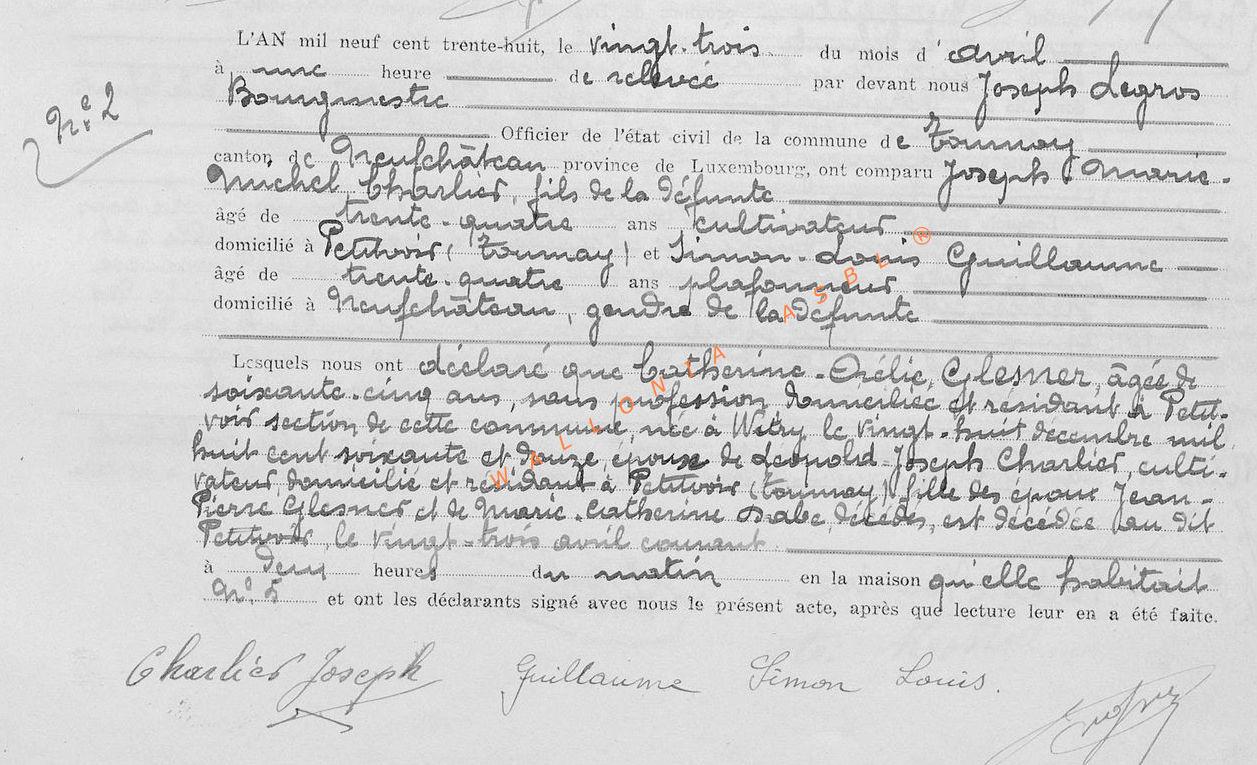 N.º 2
L'AN mil neuf cent trente-huit, le vingt-trois du mois d'avril
à une heure de relevée par devant nous Joseph Legros
Bourgmestre
Officier de l'état civil de la commune de Tournay
canton de Neufchâteau province de Luxembourg, ont comparu Joseph-Marie-
Michel Charlier, fils de la défunte
âgé de trente-quatre ans cultivateur
domicilié à Petitvoir (Tournay) et Simon-Louis Guillaume
âgé de trente-quatre ans plafonneur
domicilié à Neufchâteau, gendre de la défunte
Lesquels nous ont déclaré que Catherine-Orélie, Glesner, âgée de
soixante-cinq ans, sans profession domiciliée et résidant à Petit-
voir section de cette commune, née à Witry le vingt-huit décembre mil
huit cent soixante et douze, épouse de Léopold-Joseph Charlier, culti-
vateur, domicilié et résidant à Petitvoir (Tournay) fille des époux Jean-
Pierre Glesner et de Marie-Catherine décédés, est décédée au dit
Petitvoir, le vingt-trois avril courant
à deux heures du matin en la maison qu'elle habitait
Nº. 5 et ont les déclarants signé avec nous le présent acte, après que lecture leur en a été faite.
Charlier Joseph Guillaume Simon Louis.
WALLONIA ASBL ®